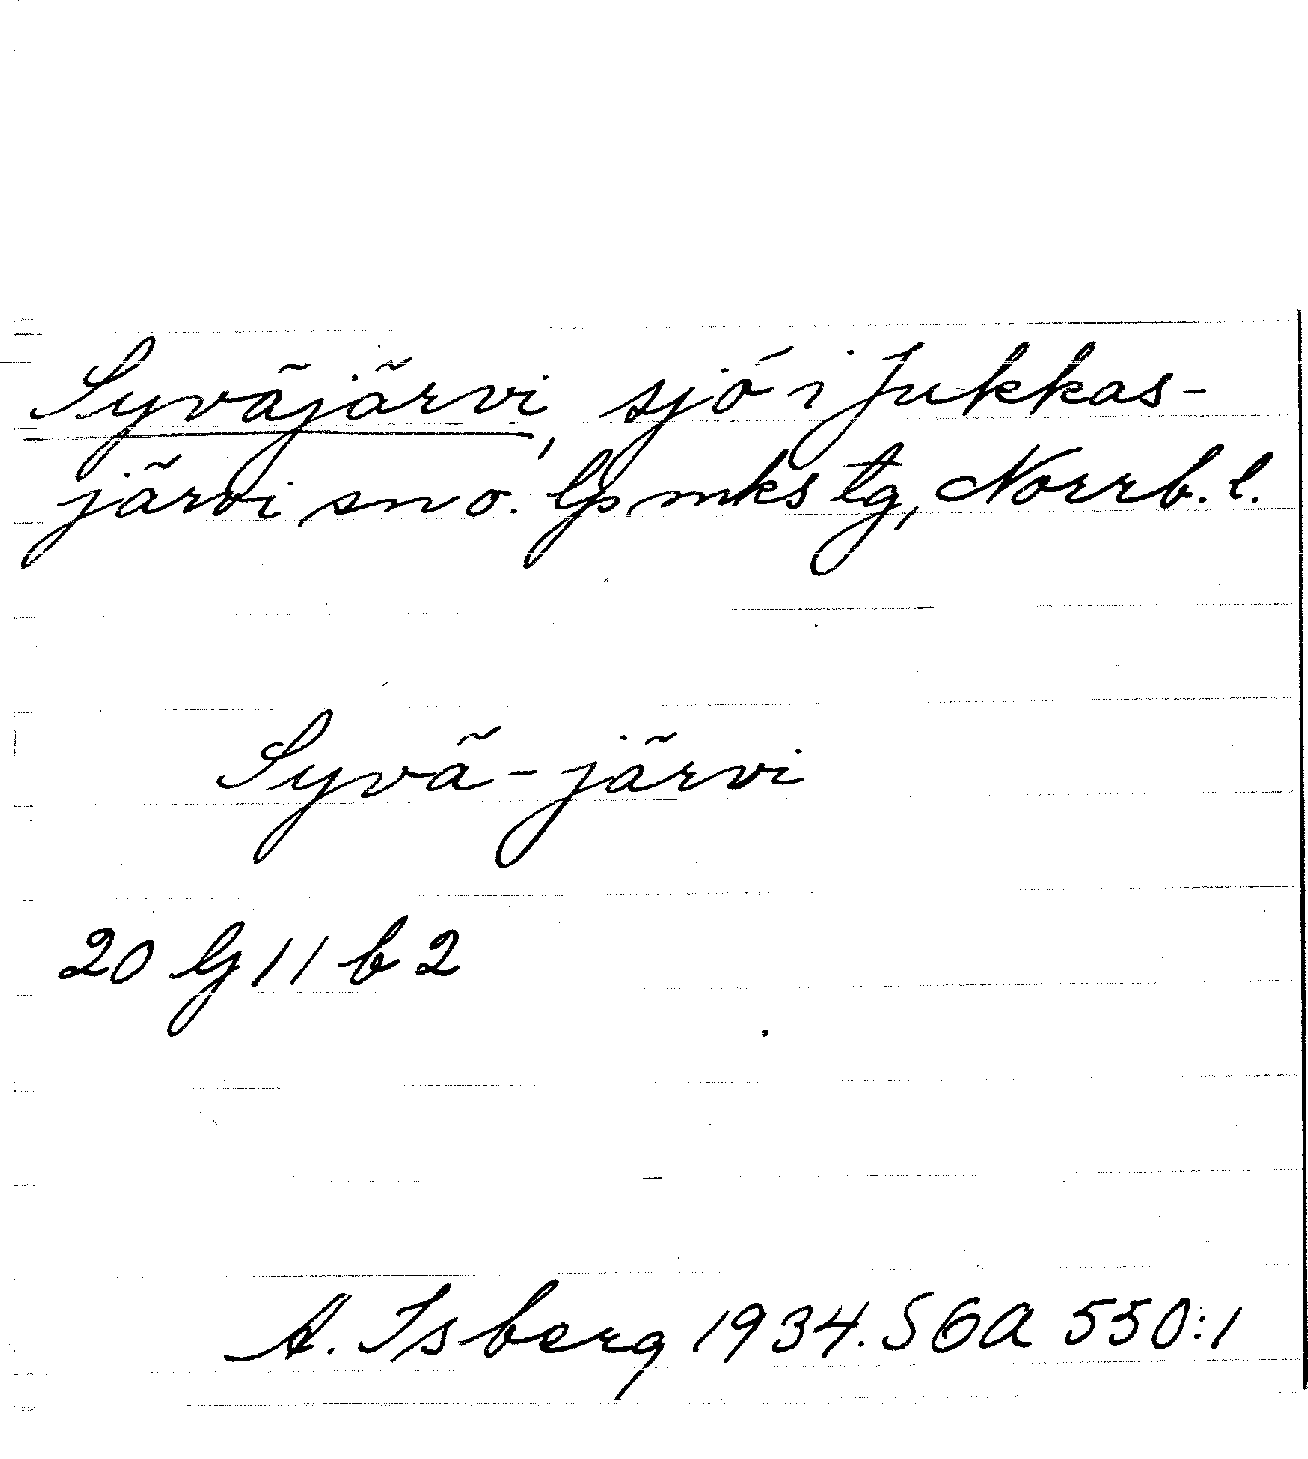 Syväjärvi, sjö i Jukkas-
järvi sn o. lpmks tg, Norrb. l.
Syvä-järvi
20 G 11 b 2
A. Isberg 1934. SOA 550:1